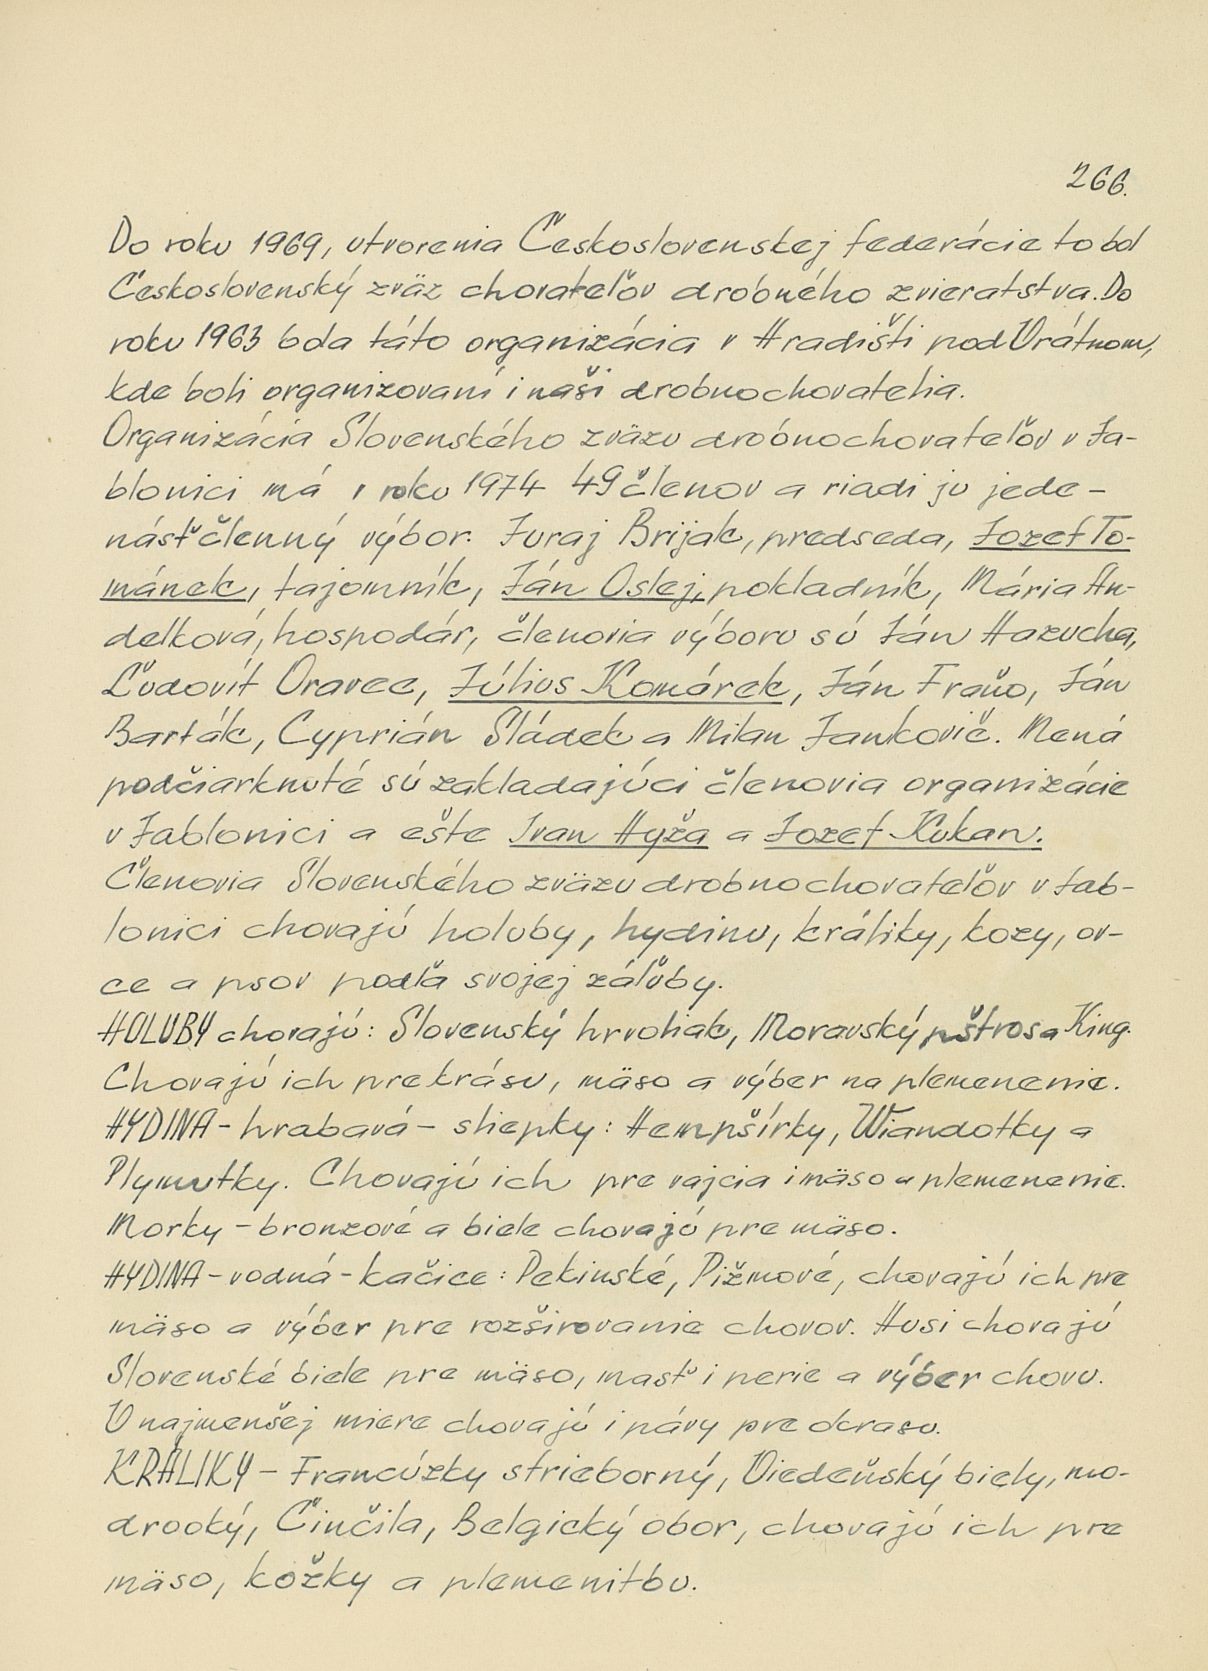 266.
Do roku 1969, utvorenia Československej federácie to bol
Československý zväz chovateľov drobného zvieratstva. Do
roku 1963 bola táto organizácia v Hradišti pod Vrátnom,
kde boli organizovaní i naši drobnochovatelia.
Organizácia Slovenského zväzu drobnochovateľov v Ja-
blonici má v roku 1974 49 členov a riadi ju jede-
násťčlenný výbor. Juraj Brijak, predseda, Jozef To-
mánek, tajomník, Ján Oslej, pokladník, Mária An-
delková, hospodár, členovia výboru sú Ján Hazucha,
Ľudovít Oravec, Július Komárek, Ján Fraňo, Ján
Barták, Cyprián Sládek a Milan Jankovič. Mená
podčiarknuté sú zakladajúci členovia organizácie
v Jablonici a ešte Ivan Hyža a Jozef Kukan.
Členovia Slovenského zväzu drobnochovateľov v Jab-
lonici chovajú holuby, hydinu, králiky, kozy, ov-
ce a psov podľa svojej záľuby.
HOLUBY chovajú: Slovenský hrvoliak, Moravský pštros a King.
Chovajú ich pre krásu, mäso a výber na plemenenie.
HYDINA - hrabavá - sliepky: Hempšírky, Wiandotky a
Plymutky. Chovajú ich pre vajcia i mäso a plemenenie.
Morky - bronzové a biele chovajú pre mäso.
HYDINA - vodná - kačice: Pekinské, Pižmové, chovajú ich pre
mäso a výber pre rozširovanie chovov. Husi chovajú
Slovenské biele pre mäso, masť i perie a výber chovu.
V najmenšej miere chovajú i pávy pre okrasu.
KRÁLIKY - Francúzky strieborný, Viedeňský biely, mo-
drooký, Činčila, Belgický obor, chovajú ich pre
mäso, kožky a plemenitbu.